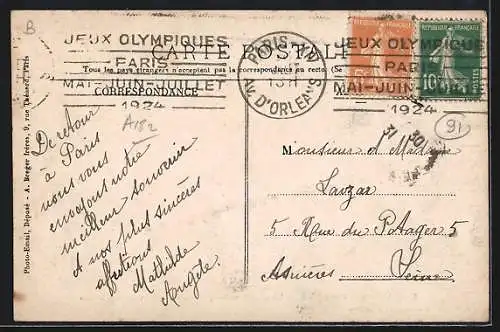 B
JEUX OLYMPIQUES
PARIS
MAI-JUIN-JUILLET
1924
CARTE POSTALE
Tous les pays étrangers n'acceptent pas la correspondance au recto (Se
CORRESPONDANCE
PARIS - XIV
AV. D'ORLEANS
JEUX OLYMPIQUES
PARIS
MAI-JUIN-JUILLET
1924
10
A182
91
De retour
à Paris
nous vous
envoyons notre
meilleur souvenir
A nos plus sincères
affections
Mathilde
Monsieur et Madame
5 Rue du Potager 5
Asnières
Seine
Photo-Émail, Déposé - A. Breger frères, 9, rue Thénard, Paris